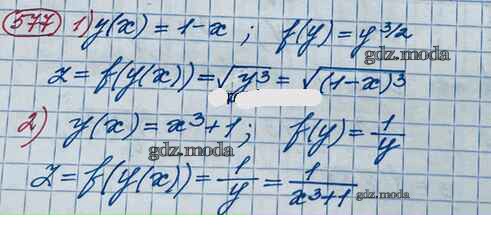 577 1) y(x) = 1-x ; f(y) = y^3/2
gdz.moda
z = f(y(x)) = √y³ = √(1-x)³
2) y(x) = x³+1; f(y) = 1/y
gdz.moda
z = f(y(x)) = 1/y = 1/(x³+1)
gdz.moda